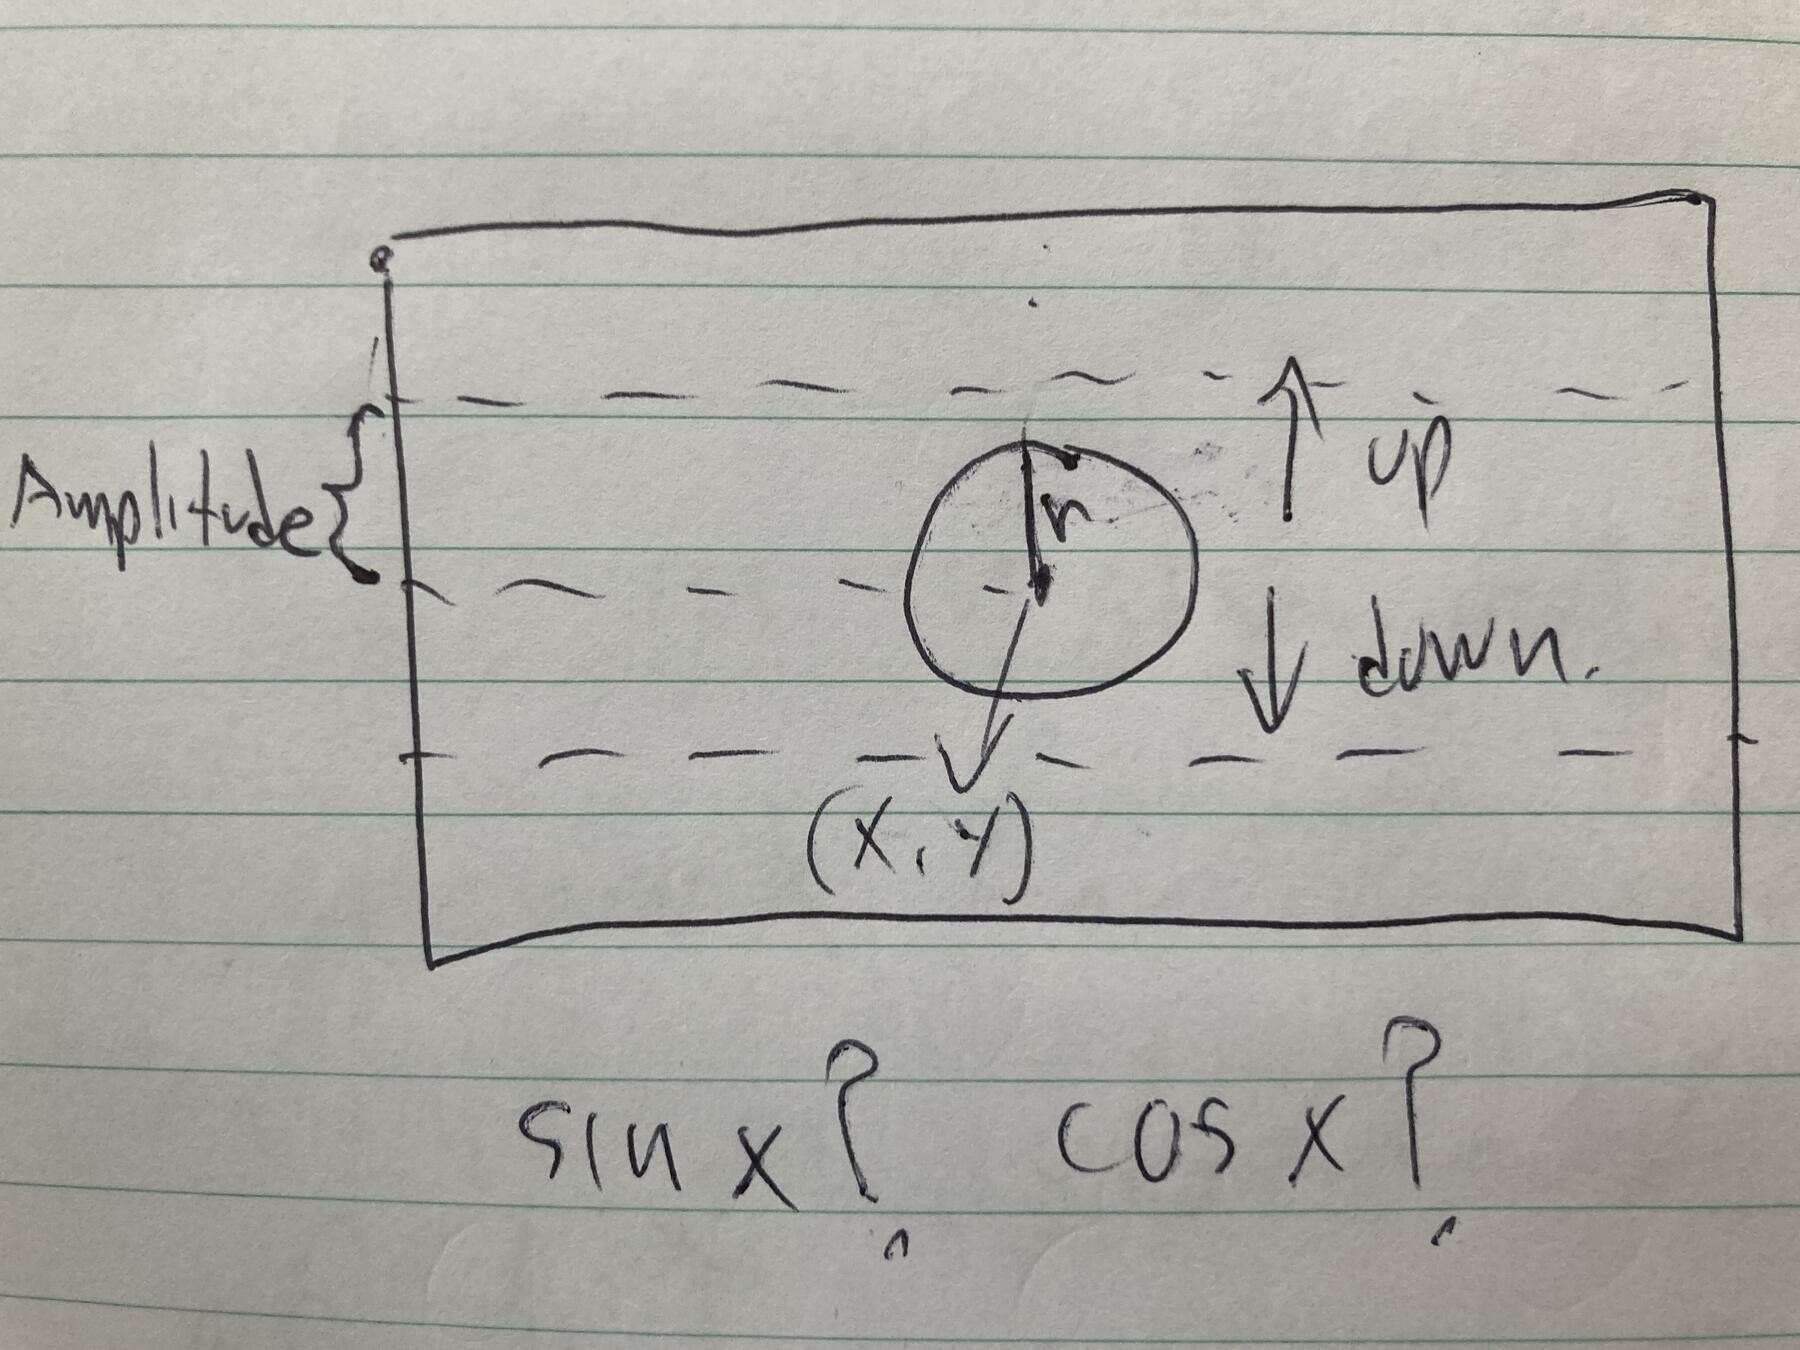 up
Amplitude
r
down.
(x, y)
sin x? cos x?